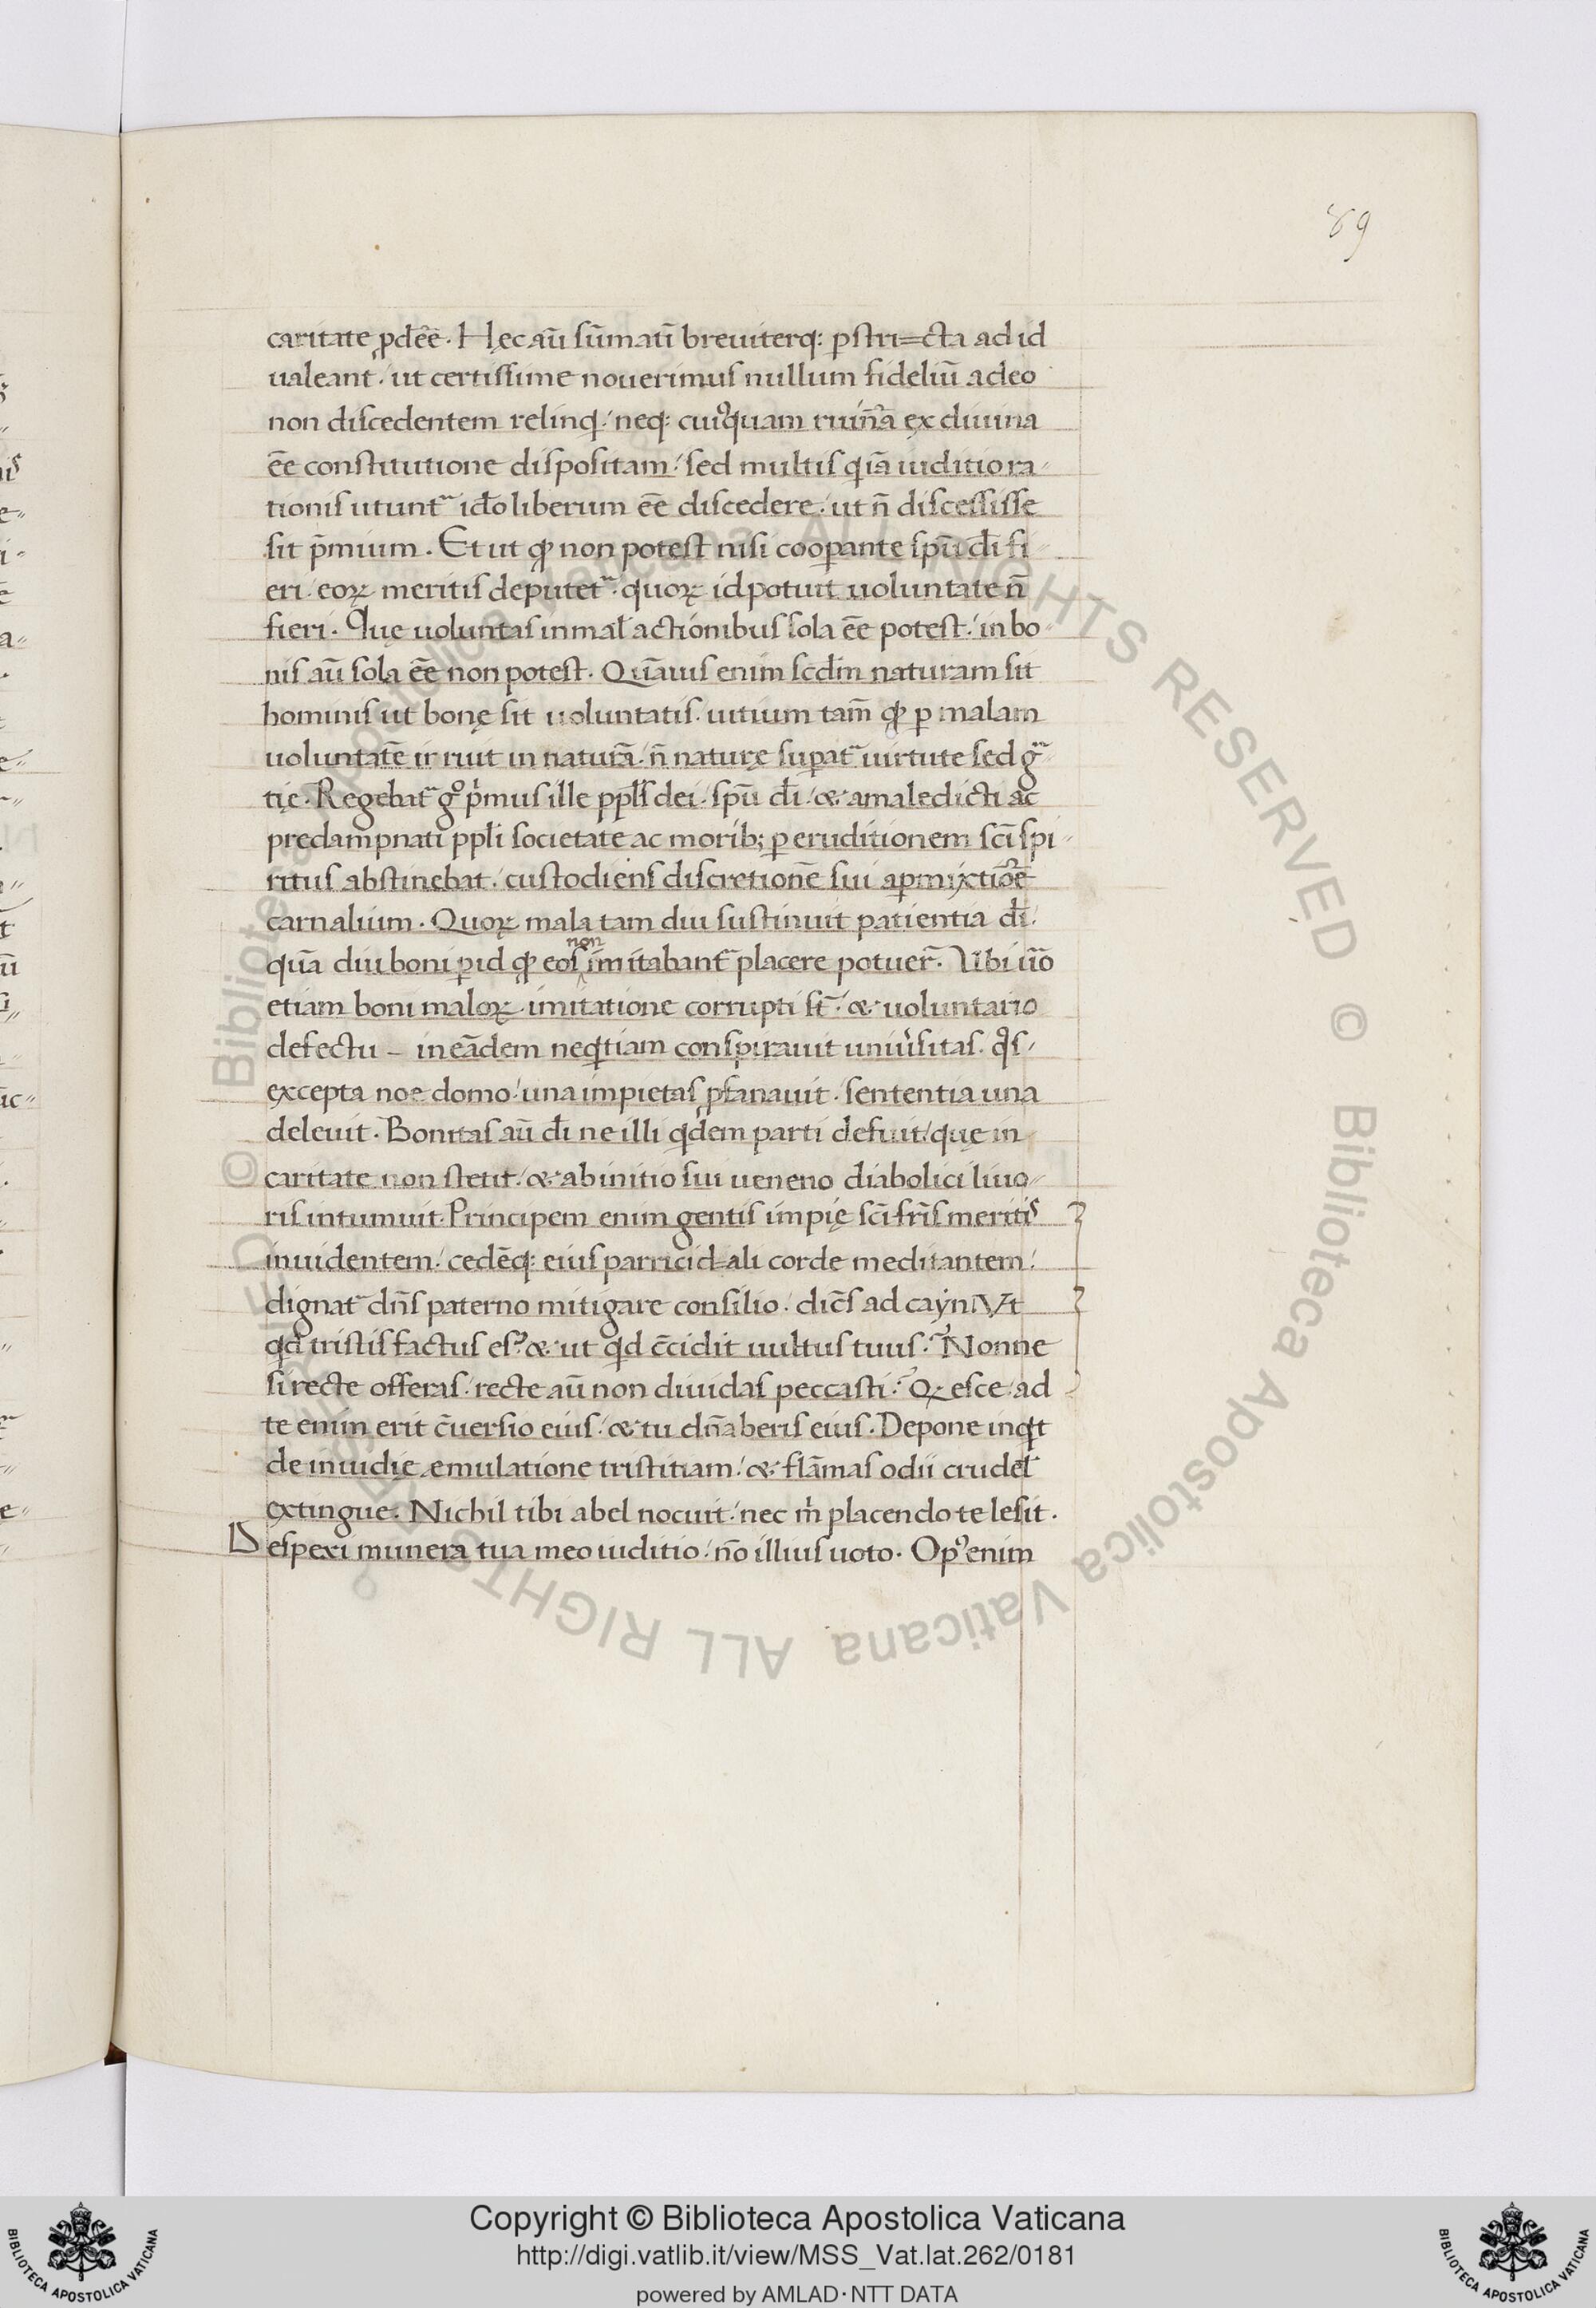 89
caritate ꝓdeēe. Hęc aū sūmatī breuiterq: pstri=cta ad id
ualeant. ut certissime nouerimus nullum fideliū a deo
non discedentem relinq. neq: cuiꝰquam ruinā ex diuina
ēe constitutione dispositam. sed multis q iā iuditio ra-
tionis utunt᷑ ido liberum ēe discedere. ut n̄ discessisse
sit p̄mium. Et ut qđ non potest nisi cooꝑante spū dī fi-
eri. eoꝝ meritis deputet᷑. quoꝝ id potuit uoluntate n̄
fieri. Quę uoluntas in mal actionibus sola ēe potest. in bo-
nis aū sola ēe non potest. Quāuis enim scđm naturam sit
hominis ut bonę sit uoluntatis. uitium tam̄ qđ ꝑ malam
uoluntatē irruit in naturā. n̄ naturę suꝑat᷑ uirtute sed gr̄a-
tię. Regebat᷑ g° p̄mus ille ppls dei. spū dī. & a maledicti ac
predampnati ppli societate ac morib; ꝑ eruditionem scī spi-
ritus abstinebat. custodiens discretionē sui a ꝑmixtiōe
carnalium. Quoꝝ mala tam diu sustinuit patientia dī.
quā diu boni ꝑ id qđ eos non imitabant᷑ placere potuer̄. Ubi ūo
etiam boni maloꝝ imitatione corrupti st̄. & uoluntario
defectu – in eādem neqtiam conspirauit uniuersitas. qs
excepta noe domo. una impietas ꝓfanauit. sententia una
deleuit. Bonitas aū dī ne illi qdem parti defuit. quę in
caritate non stetit. & ab initio sui ueneno diabolici liuo-
ris intumuit. Principem enim gentis impię scī fris meritis
inuidentem. cedēq: eius parricid=ali corde meditantem.
dignat᷑ dn̄s paterno mitigare consilio. dicēs ad cayn. Vt
qd tristis factus es? & ut qd c̄cidit uultus tuus? Nonne
si recte offeras. recte aū non diuidas peccasti? Qesce. ad
te enim erit c̄uersio eius. & tu dn̄aberis eius. Depone inqt
de inuidię emulatione tristitiam. & flāmas odii crudel
extingue. Nichil tibi abel nocuit. nec m̄ placendo te lesit.
Despexi munera tua meo iuditio. nō illius uoto. Opꝰ enim
© Biblioteca Apostolica Vaticana ALL RIGHTS RESERVED
Copyright © Biblioteca Apostolica Vaticana
http://digi.vatlib.it/view/MSS_Vat.lat.262/0181
powered by AMLAD·NTT DATA
BIBLIOTECA APOSTOLICA VATICANA
BIBLIOTECA APOSTOLICA VATICANA